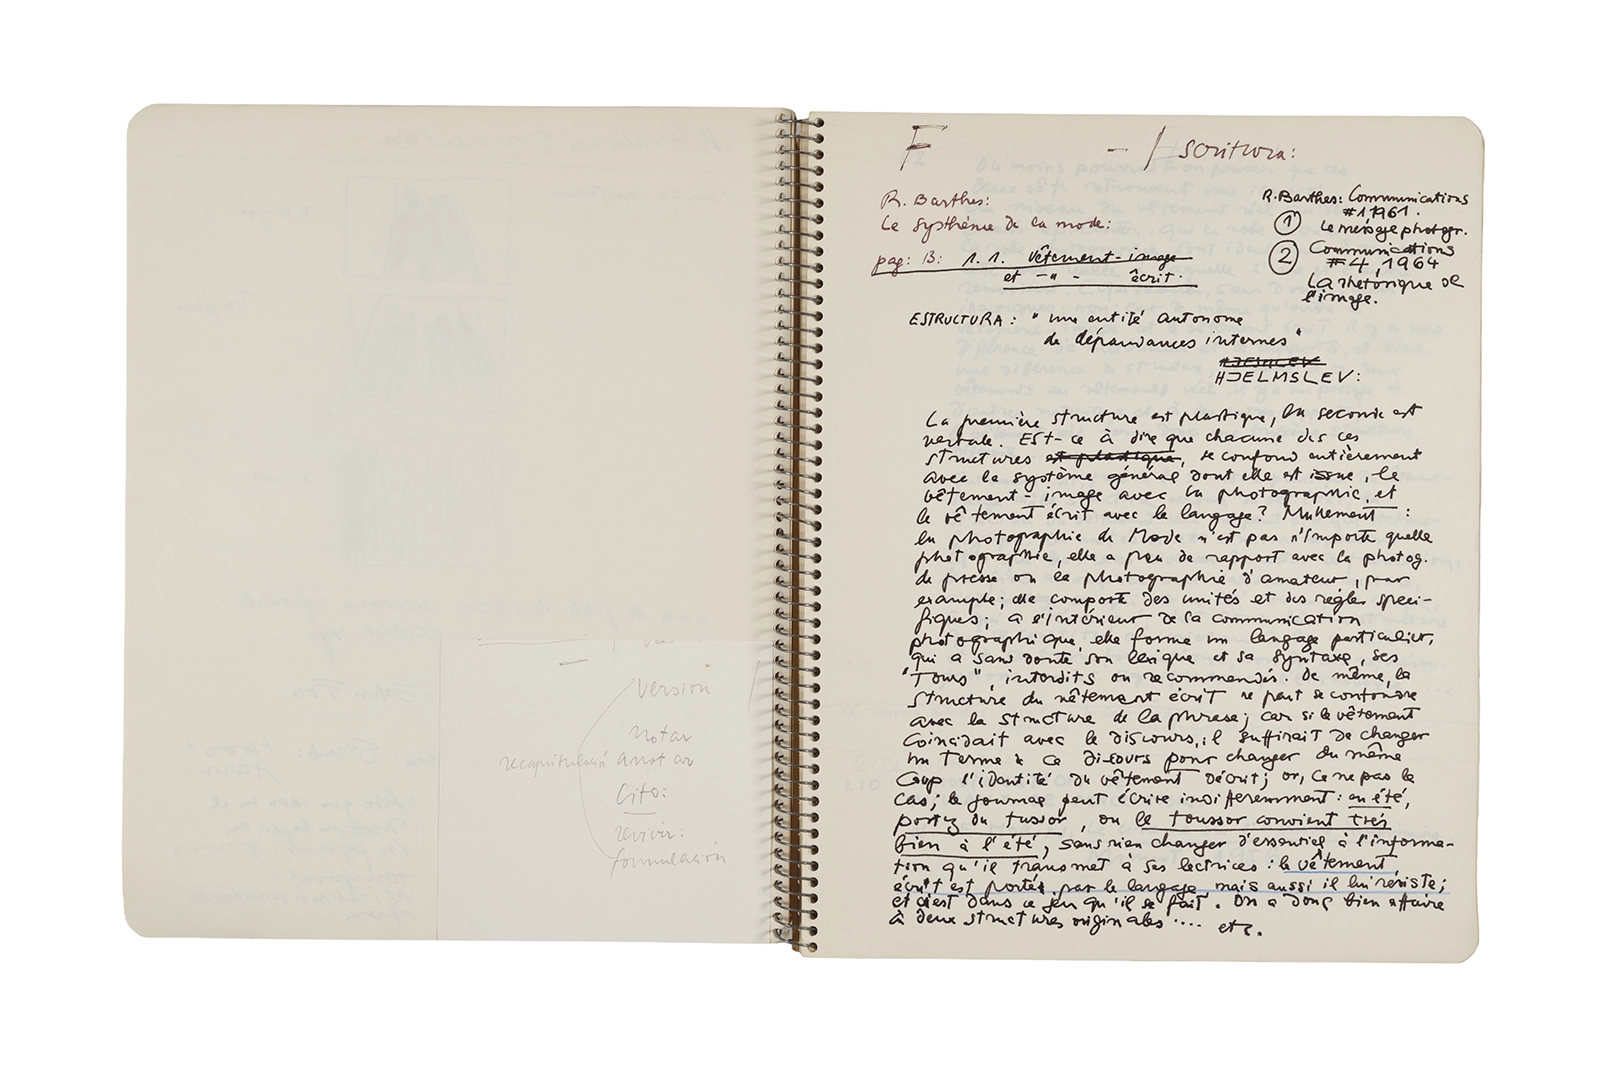 version
notar
recapitulació anotar
cito:
revivir:
formulación
F - / scritura:
R. Barthes:
Le systhème de la mode:
pag: 13: 1.1. vêtement-image
et -"- écrit.
R. Barthes: Communications
#1, 1961.
① Le message photogr.
② Communications
#4, 1964
La rhétorique de
l'image.
ESTRUCTURA: "une entité autonome
de dépandances internes"
HJELMSLEV:
La première structure est plastique, la seconde est
verbale. Est-ce à dire que chacune des ces
structures est plastique, se confond entièrement
avec le système général dont elle est issue, le
vêtement-image avec la photographie, et
le vêtement écrit avec le langage? Nullement :
la photographie de Mode n'est pas n'importe quelle
photographie, elle a peu de rapport avec la photog.
de presse ou la photographie d'amateur, par
example; elle comporte des unités et des règles speci-
fiques; a l'intérieur de la communication
photographique, elle forme un langage particulier,
qui a sans doute son lexique et sa syntaxe, ses
"Tours", interdits ou recommandés. De même, la
structure du vêtement écrit ne peut se confondre
avec la structure de la phrase; car si le vêtement
coincidait avec le discours, il suffirait de changer
un terme de ce discours pour changer du même
coup l'identité du vêtement décrit; or, ce ne pas le
cas; le journal peut écrire indifferemment: en été,
portez du tussor, ou le toussor convient très
bien à l'été, sans rien changer d'essentiel à l'informa-
tion qu'il transmet à ses lectrices : le vêtement
écrit est porté par le langage, mais aussi il lui résiste;
et c'est dans ce jeu qu'il se fait. On a donc bien affaire
à deux structures originales .... etc.